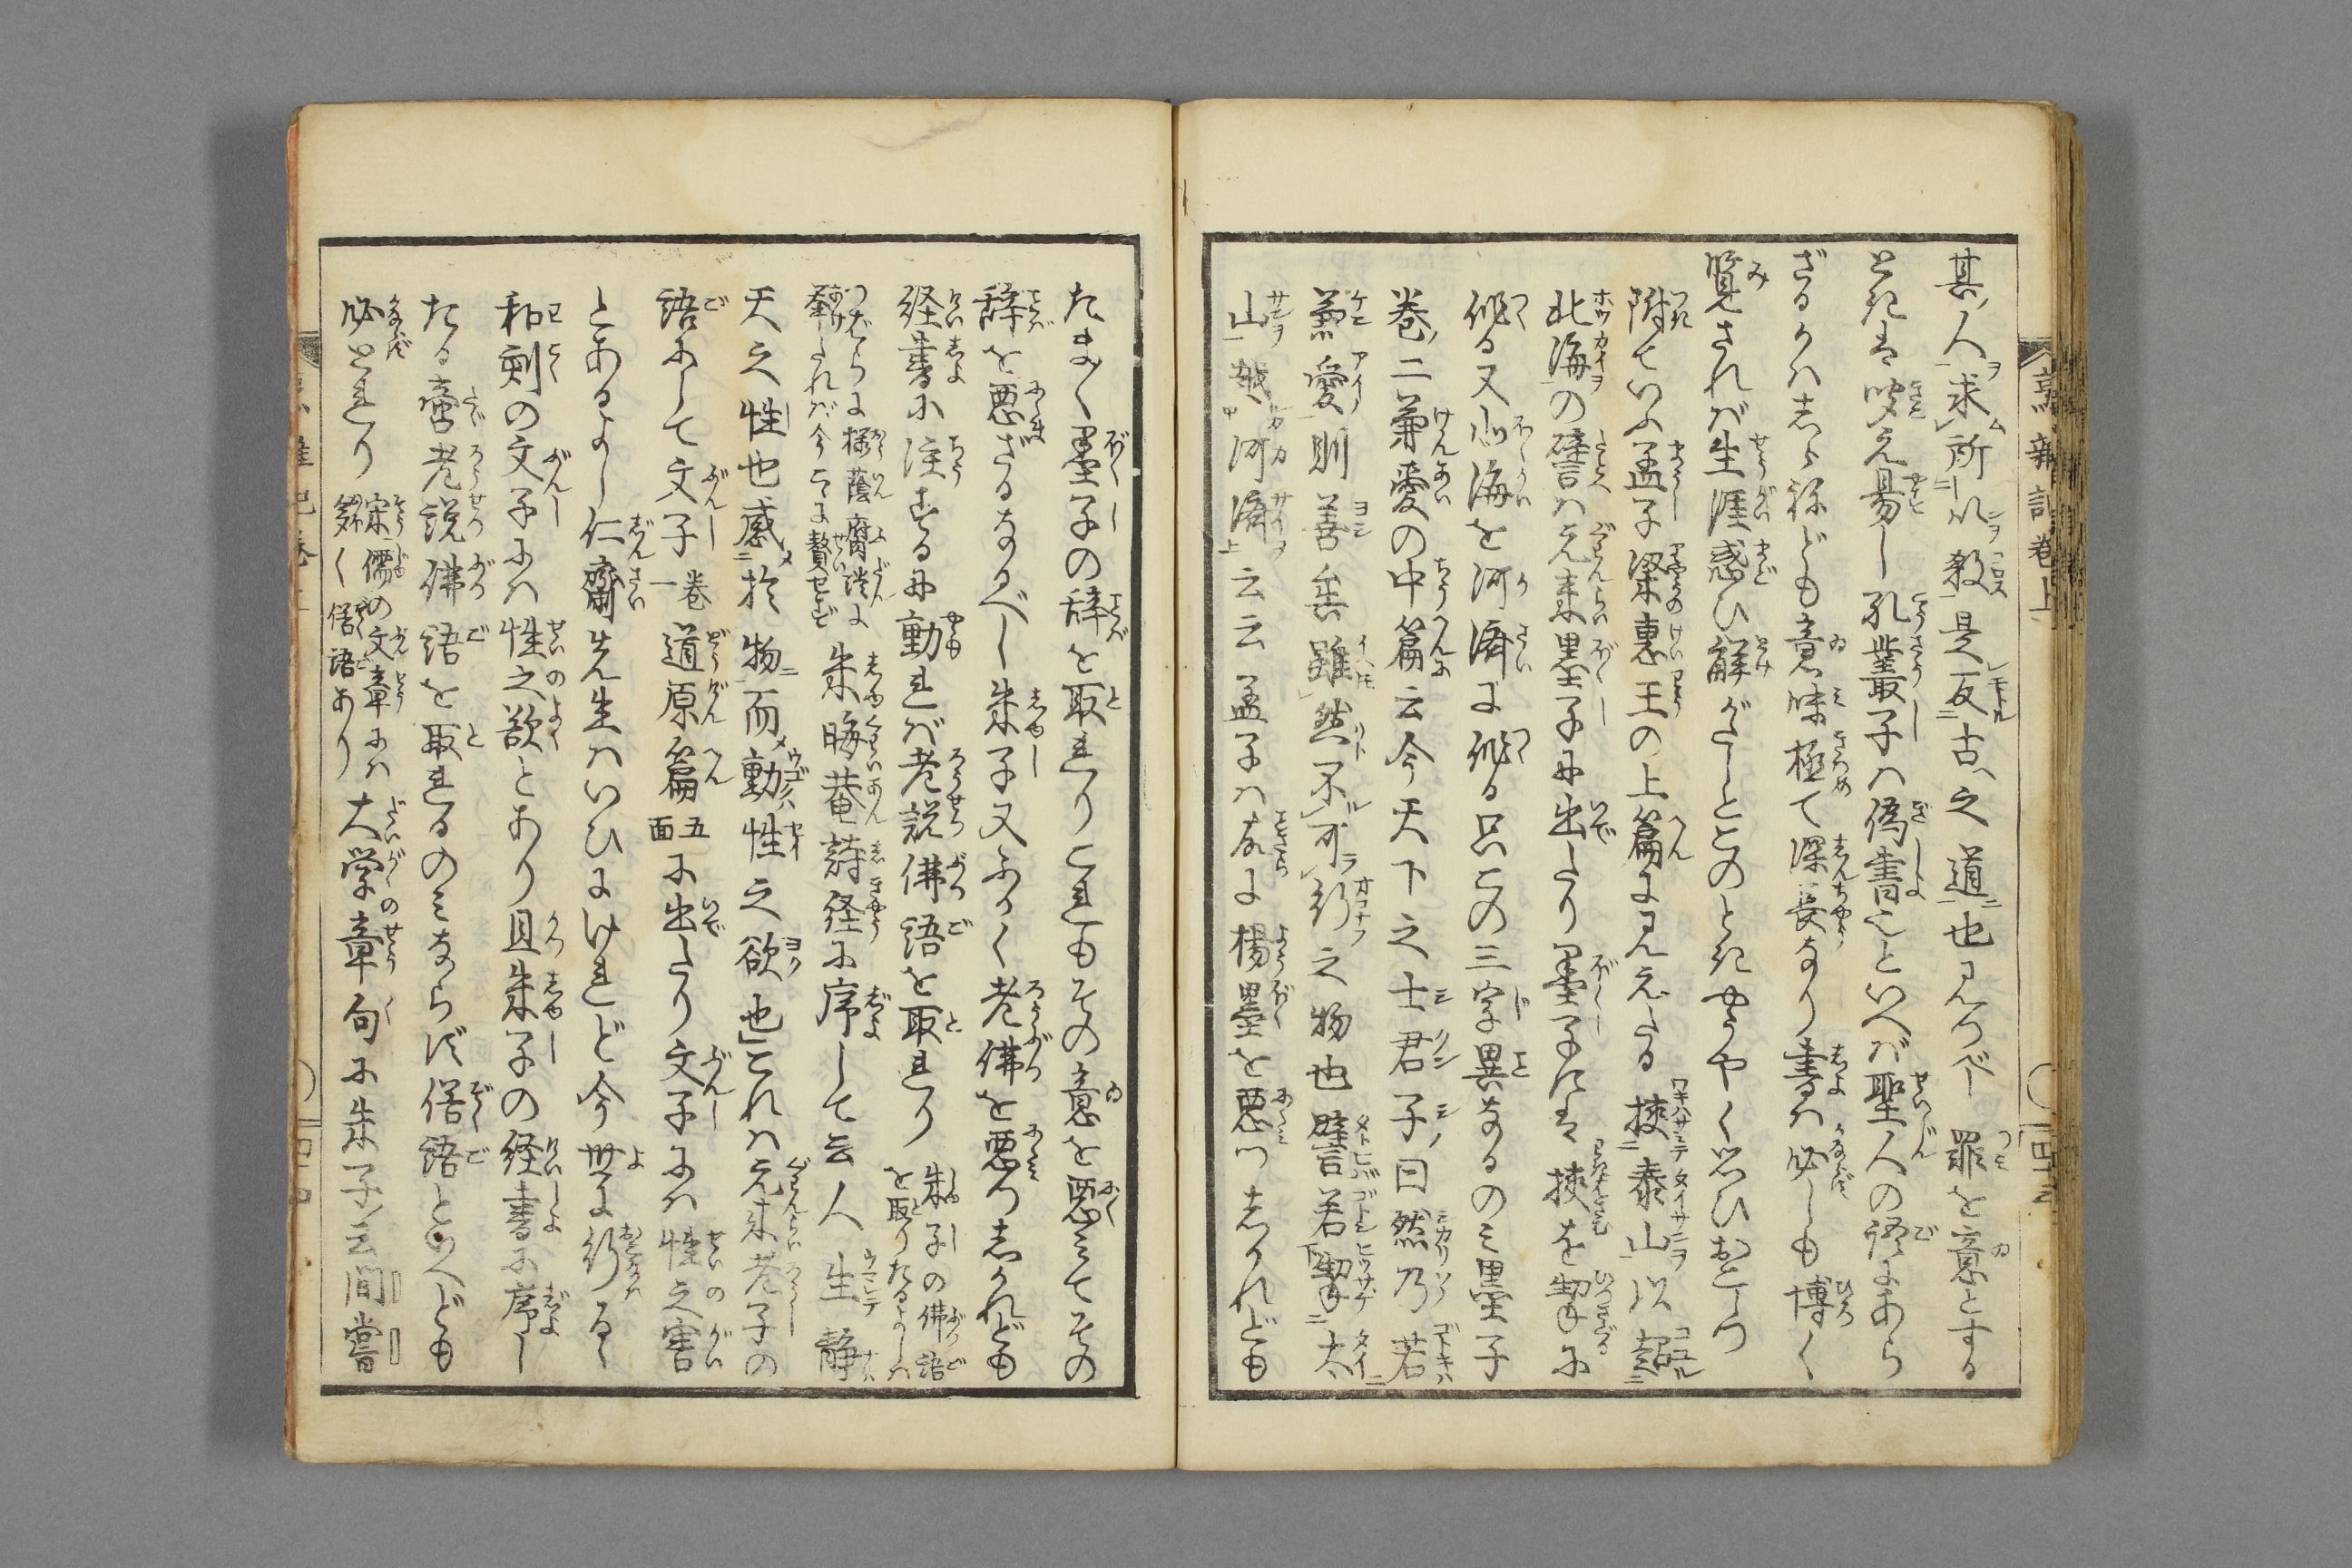 其人求所以殺是反古之道也見つべし罪を意とする
ときは咬え易し孔叢子は偽書也といへば聖人の語にあら
ざるかはしらねども意味極て深長なり書は必しも博く
覧されば生涯惑ひ解がたしとこのときやうやく思ひおこしつ
附ていふ孟子梁惠王の上篇に見えたる挾泰山以超
北海の譬は元来墨子に出たり墨子には挾を挈に
作る又北海を河濟に作る只この三字異なるのミ墨子
巻二兼愛の中篇云今天下之士君子曰然乃若
兼愛則善矣雖然不可行之物也譬若挈太
山越河濟云云孟子は故に楊墨を悪ミつしかれども
たま〱墨子の辞を取れりこれもその意を悪ミてその
辞を悪ざるなるべし朱子又ふかく老佛を悪ミつしかれども
経書に注するに動れば老説佛語を取れり朱子の佛語を取りたるよしは
つばらに樾蔭腐談に挙たれば今こゝに贅せず朱晦菴詩経に序して云人生静
天之性也感於物而動性之欲也これは元来老子の
語にして文子一巻道原篇五面に出たり文子には性之害
とあるよし仁齋先生はいひにけれど今世に行るゝ
和刻の文子には性之欲とあり且朱子の経書に序し
たる啻老説佛語を取れるのミならず俗語といへども
必とれり宋儒の文章には多く俗語あり大学章句に朱子云間嘗
烹雜記巻上